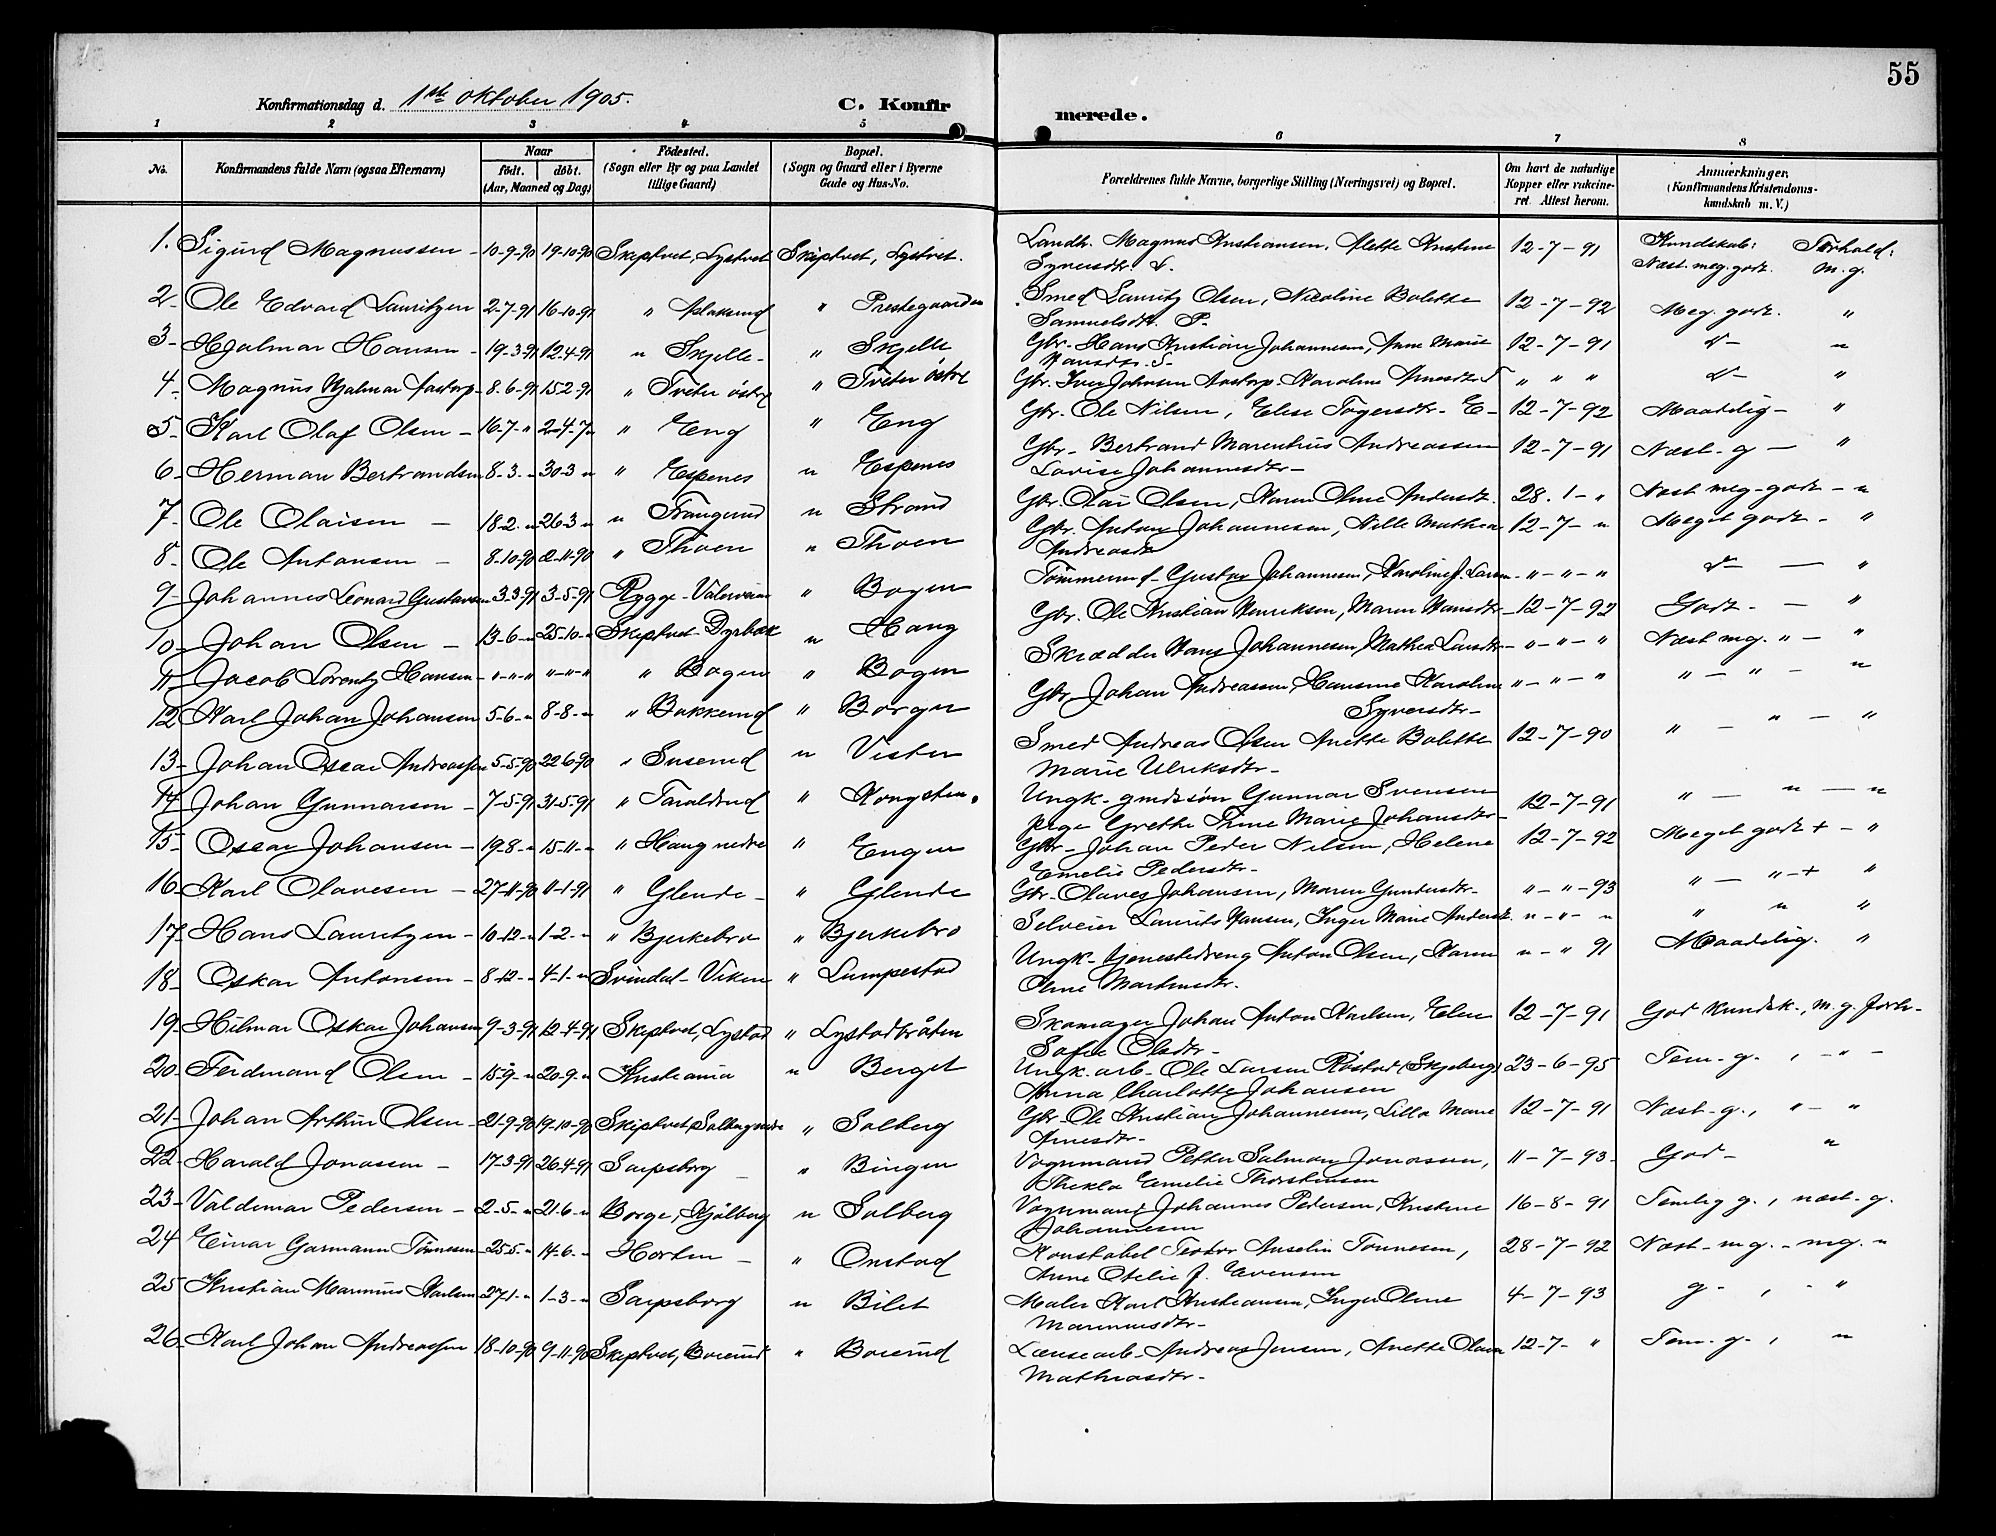 55
Konfirmationsdag d. 1ste oktober 1905.
C. Konfirmerede.
1 2 3 4 5 6 7 8
No. Konfirmandens fulde Navn (ogsaa Efternavn) Naar født. døbt. (Aar, Maaned og Dag) Fødested. (Sogn eller By og paa Landet tillige Gaard) Bopæl. (Sogn og Gaard eller i Byerne Gade og Hus-No. Forældrenes fulde Navne, borgerlige Stilling (Næringsvei) og Bopæl. Om havt de naturlige Kopper eller vakcineret. Attest herom. Anmærkninger. (Konfirmandens Kristendomskundskab m. V.)
1. Sigurd Magnussen - 10-9-90 19-10-90 Skiptvet, Lystvet Skiptvet, Lystvet. Landh. Magnus Kristiansen, Alette Kristine 12-7-91 Kundskab: Forhold:
Syversdtr. L. Næst. meg. godt. m. g.
2- Ole Edvard Lauritzen 2-7-91 16-10-91 " " Prestegaarden Smed Lauritz Olsen, Nicoline Bolette 12-7-92 Meg. godt. "
Samuelsdtr. P-
3- Hjalmar Hansen - 19-3-91 12-4-91 " Skjelle - " Skjelle Gbr. Hans Kristian Johannesen, Anne Marie 12-7-91 d- "
Hansdtr. S-
4- Magnus Hjalmar Aastorp - 8-6-91 15-2-91 " Tveter østre " Tveter østre Gbr. Iver Johnsen Aastorp. Karoline Arnesdtr. T " " " d- "
5- Karl Olaf Olsen - 16-7-" 2-4-7- " Eng " Eng Gbr. Ole Nilsen, Elise Togersdtr- E- 12-7-92 Maadelig- "
6- Herman Bertrandsen 8-3-" 30-3-" " Espenes " Espenes Gbr- Bertrand Marenthius Andreassen 12-7-91 Næst- g- "
Lovise Johannesdtr-
7- Ole Olaisen - 18-2-" 26-3-" " Trangerud " Strand Gbr. Olai Olsen, Karen Oline Andersdt. 28-1-" Næst meg- godt- "
8- Ole Antonsen - 8-10-90 2-11-90 " Thoen " Thoen Gbr. Anton Johannesen, Nille Mathea 12-7-" Meget godt- "
Andreasdtr
9- Johannes Leonard Gustavsen 3-3-91 3-5-91 Rygge- " Bogen Tømmermd- Gustav Johannesen, Karoline J. Larsen - "-"-" d- - "
10- Johan Olsen - 13-6-" 25-10-" Skiptvet- Dyrbæk " Haug Gbr. Ole Kristian Henriksen, Maren Hansdtr- 12-7-92 Godt- - "
11- Jacob Lorentz Hansen - "-"-" "-"-" " Bogen " Bogen Skrædder Hans Johannesen, Mathea Larsdtr- "-"-" Næst mg. "- "
12 Karl Johan Johansen 5-6-" 8-8-" " Bakkerud " Borger Gbr Johan Andreassen, Hansine Karoline "-"-" "-"- "
Syversdtr-
13- Johan Oscar Andreassen 5-5-90 22-6-90 " Suserud " Vister Smed Andreas Olsen Anette Bolette 12-7-90 " - " - "
Marie Ulriksdtr-
14- Johan Gunnarsen - 7-5-91 31-5-91 " Taraldrud " Kongsten. Ungk- gmdssøn Gunnar Svensen 12-7-91 " - " - "
Pige Grethe Trine Marie Johansdtr-
15- Oscar Johansen - 19-8-" 15-11-" " Haug nedre " Engen Gbr- Johan Peder Nilsen, Helene 12-7-92 Meget godt + - "
Emelie Pedersdtr-
16- Karl Olavesen - 27-11-90 11-1-91 " Glende - " Glende Gbr- Olaves Johansen, Maren Gundersdtr- "-"-93 " - "-+ "
17- Hans Lauritzen - 10-12-" 1-2-" " Bjerkebro " Bjerkebro Selveier Laurits Hansen, Inger Marie Andersd. "-"-" " " "
18- Oskar Antonsen - 8-12-" 4-1-" Svindal- Viken " Lumpestad Ungk- tjenestedreng Anton Olsen, Karen "-" 91 Maadelig. "
Oline Martinsdtr-
19- Hilmar Oskar Johansen 9-3-91 12-4-91 Skiptvet, Lystad " Lystadbråten Skomager Johan Anton Karlsen, Elen 12-7-91 God kundsk-, m. g. forh-
Sofie Olsdtr-
20- Ferdinand Olsen - 15-9-" 20-9-" Kristiania " Berget Ungk. arb- Ole Larsen Råstad (Skjeberg) 23-6-95 Tem- g. , -"-
Anna Charlotte Johansen
21- Johan Arthur Olsen - 21-9-90 19-10-90 Skiptvet, Solberg nedre " Solberg Gbr- Ole Kristian Johannesen, Lilla Marie 12-7-91 Næst- g., "-"
Arnesdtr-
22- Harald Jonassen - 17-3-91 26-4-91 Sarpsborg - " Bingen Vognmand Petter Salmon Jonassen, 11-7-93- God- "
Thekla Emelie Thorstensen
23- Valdemar Pedersen - 2-5-" 21-6-" Borge, Kjølberg " Solberg Vognmand Johannes Pedersen, Kristine 16-8-91 Temlig g., næst- g.
Johannesen
24 Einar Garmann Tönnesen 25-5-" 14-6-" Horten - " Onstad Konstabel Teodor Anselin Tönnesen, 28-7-92 Næst- mg. - mg.- "
Anne Otelie J. Evensen
25 Kristian Marinius Karlsen 27-1-" 1-3-" Sarpsborg " Bilet Maler Karl Kristiansen, Inger Oline 4-7-93 g- , - "
Marinusdtr-
26- Karl Johan Andreassen 18-10-90 9-11-90 Skiptvet, Boierud " Boierud Lænsearb- Andreas Jensen, Anette Olava 12-7- " Tem- g- , "
Mathiasdtr-